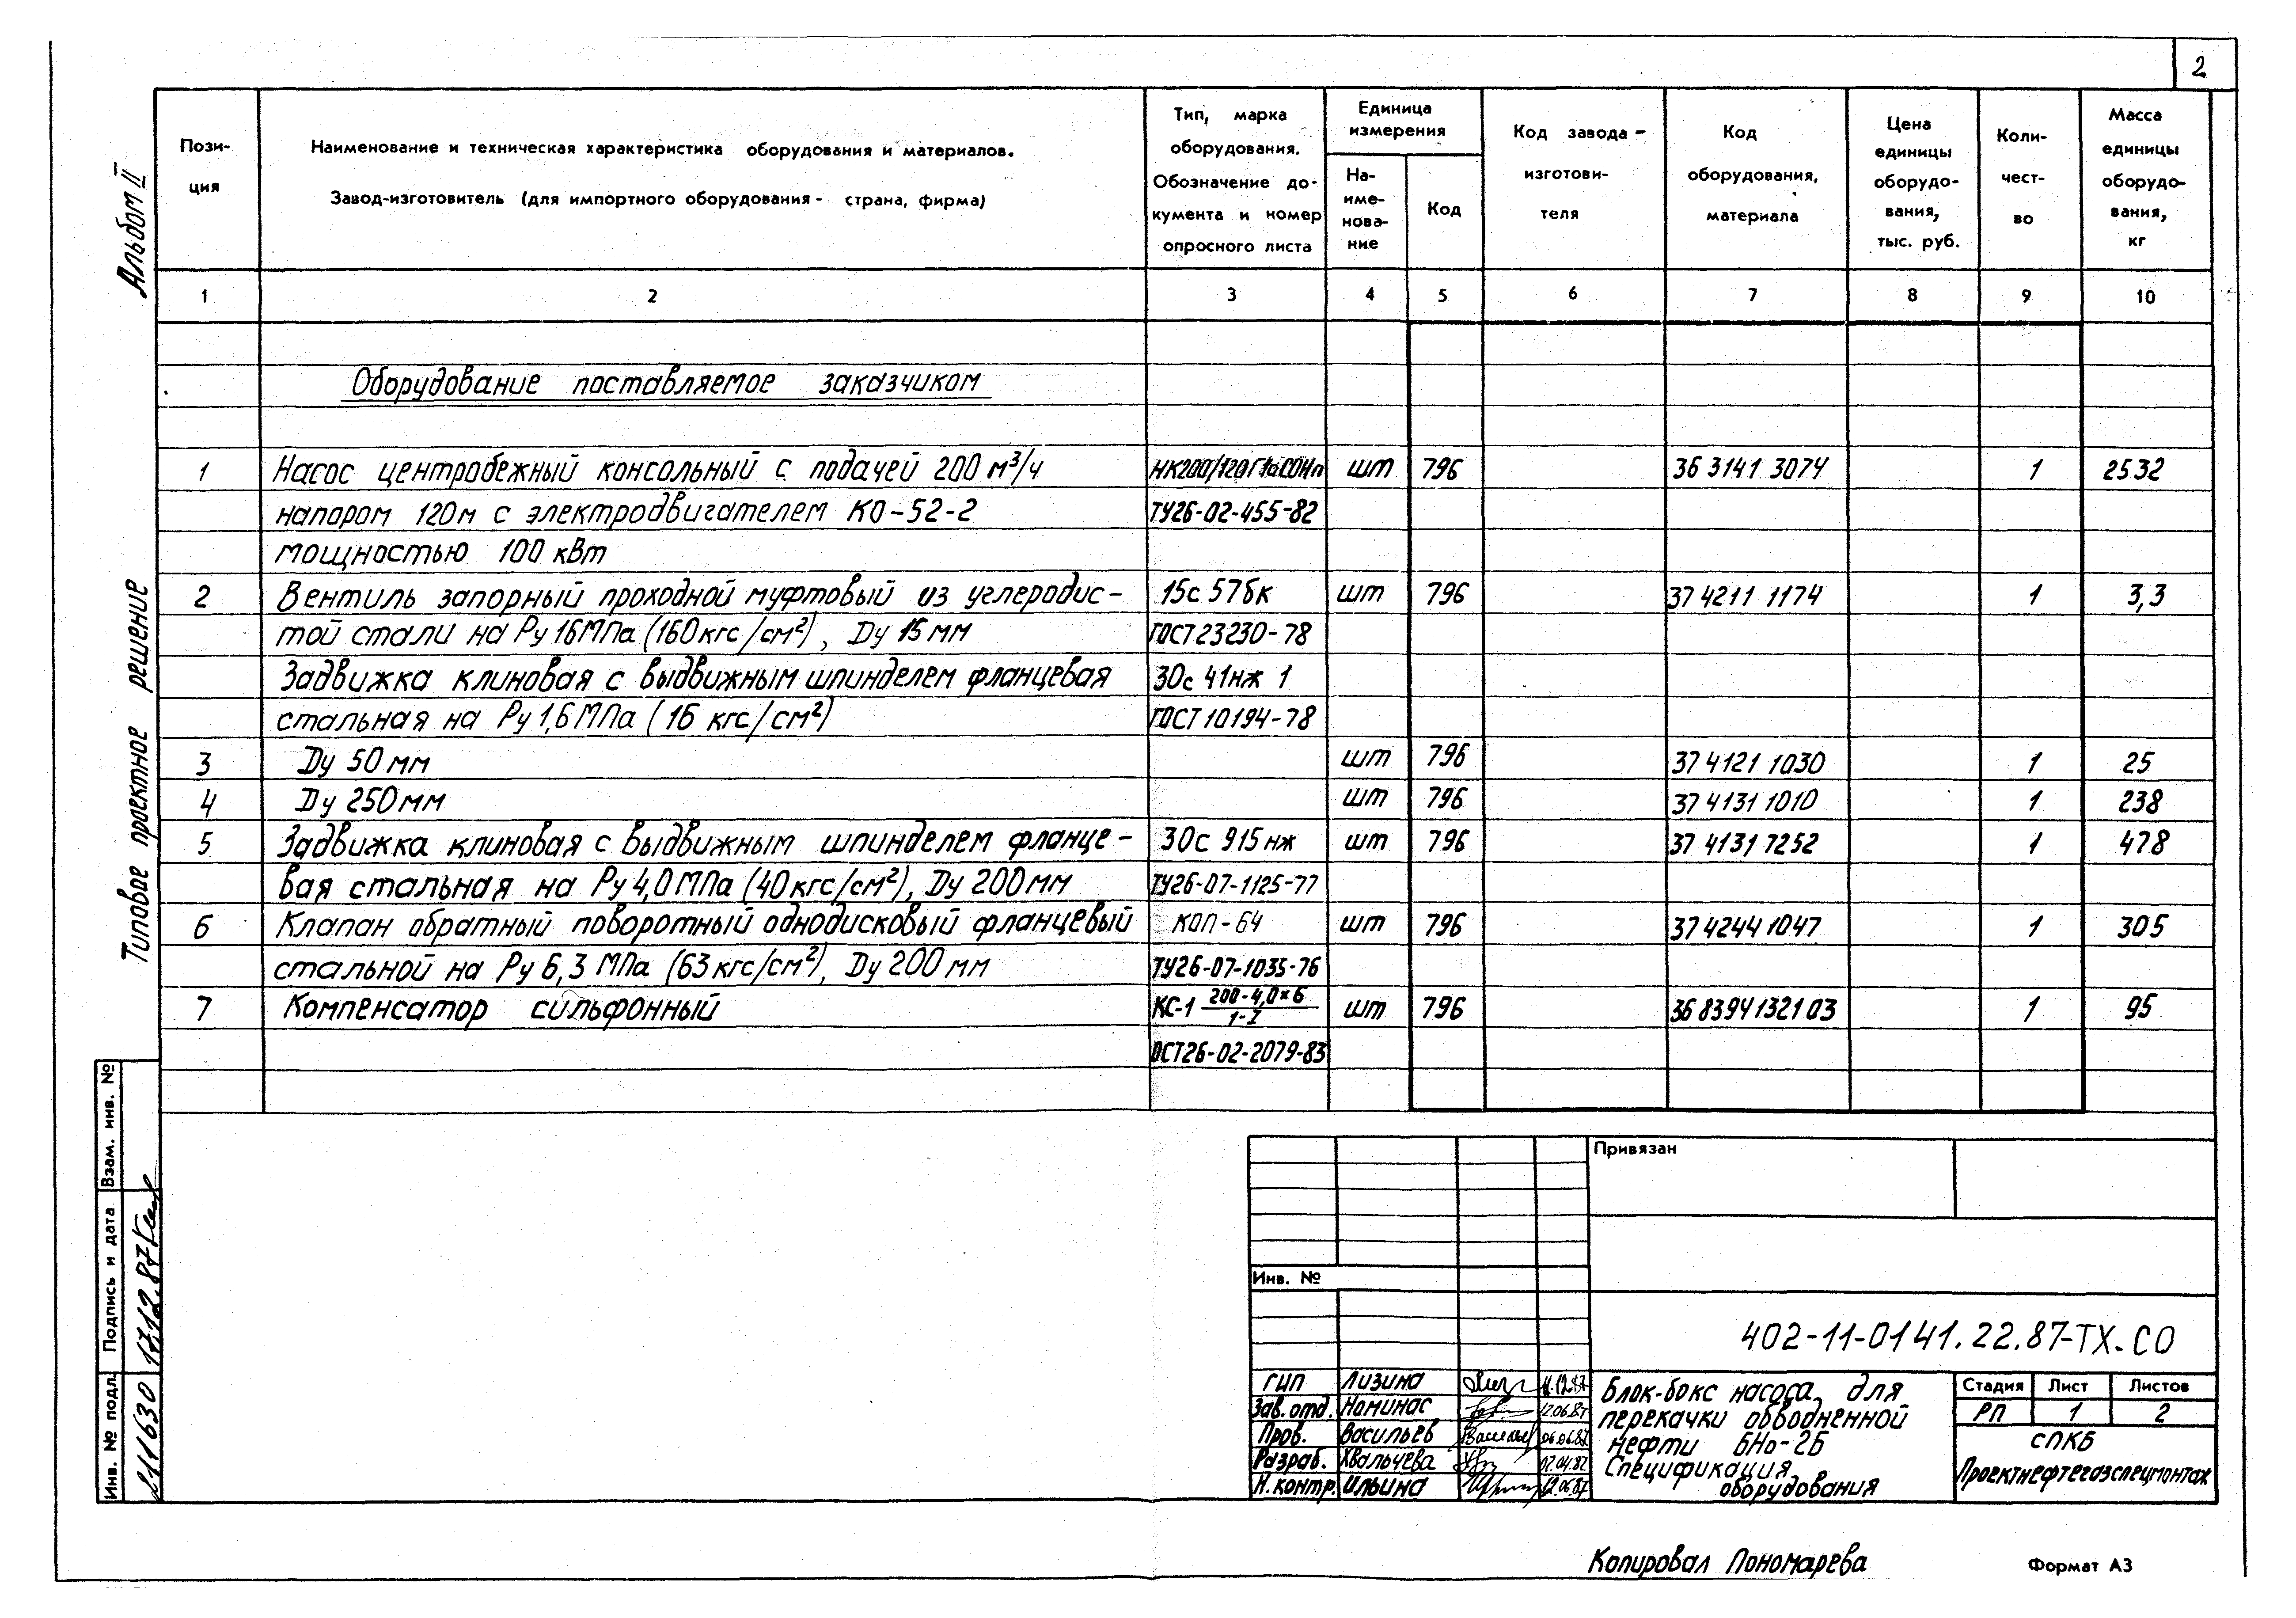 2
Альбом II
Типовое проектное решение
Пози-
ция
Наименование и техническая характеристика оборудования и материалов.
Завод-изготовитель (для импортного оборудования - страна, фирма)
Тип, марка
оборудования.
Обозначение до-
кумента и номер
опросного листа
Единица
измерения
На-
име-
нова-
ние
Код
Код завода-
изготови-
теля
Код
оборудования,
материала
Цена
единицы
оборудо-
вания,
тыс. руб.
Коли-
чест-
во
Масса
единицы
оборудо-
вания,
кг
1 2 3 4 5 6 7 8 9 10
Оборудование поставляемое заказчиком
1 Насос центробежный консольный с подачей 200 м³/ч шт 796 36 3141 3074 1 2532
напором 120м с электродвигателем КО-52-2 ТУ26-02-455-82
мощностью 100 кВт
2 Вентиль запорный проходной муфтовый из углеродис- 15с 57бк шт 796 37 4211 1174 1 3,3
той стали на Ру 16МПа (160кгс/см²), Ду 15 мм ГОСТ 23230-78
Задвижка клиновая с выдвижным шпинделем фланцевая 30с 41нж 1
стальная на Ру 1,6 МПа (16 кгс/см²) ГОСТ 10194-78
3 Ду 50 мм шт 796 37 4121 1030 1 25
4 Ду 250 мм шт 796 37 4131 1010 1 238
5 Задвижка клиновая с выдвижным шпинделем фланце- 30с 915 нж шт 796 37 4131 7252 1 478
вая стальная на Ру 4,0 МПа (40 кгс/см²), Ду 200 мм ТУ26-07-1125-77
6 Клапан обратный поворотный однодисковый фланцевый КОП-64 шт 796 37 4244 1047 1 305
стальной на Ру 6,3 МПа (63 кгс/см²), Ду 200 мм ТУ26-07-1035-76
7 Компенсатор сильфонный КС-1 200-4,0×6 / 1-I шт 796 36 8394 1321 03 1 95
ОСТ26-02-2079-83
Взам. инв. №
Подпись и дата
17.12.87
Инв. № подл.
Привязан
Инв. №
402-11-0141.22.87-ТХ.СО
ГИП Лизина
Зав. отд. Номинас 12.06.87
Пров. Васильев 06.06.87
Разраб. Хвальчева
Н. контр. Ильина 12.06.87
Блок-бокс насоса для
перекачки обводненной
нефти БНо-2Б
Спецификация
оборудования
Стадия Лист Листов
РП 1 2
СПКБ
Проектнефтегазспецмонтаж
Копировал Пономарева
Формат А3